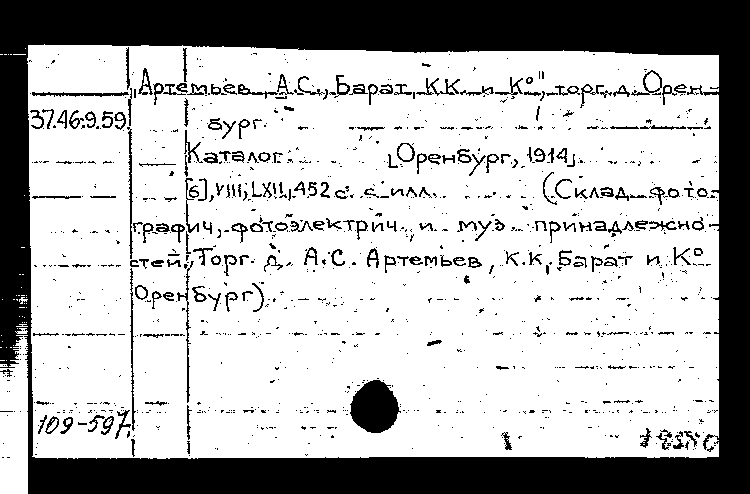 „Артемьев, А.С., Барат, К.К. и К°", торг. д. Орен-
37.46:9.59 бург.
Каталог. [Оренбург, 1914]
[6], VIII, LXII, 452 с. с илл. (Склад фото-
графич, фотоэлектрич. и муз. принадлежно-
стей. Торг. д. А.С. Артемьев, К.К. Барат и К°
Оренбург).
109-597